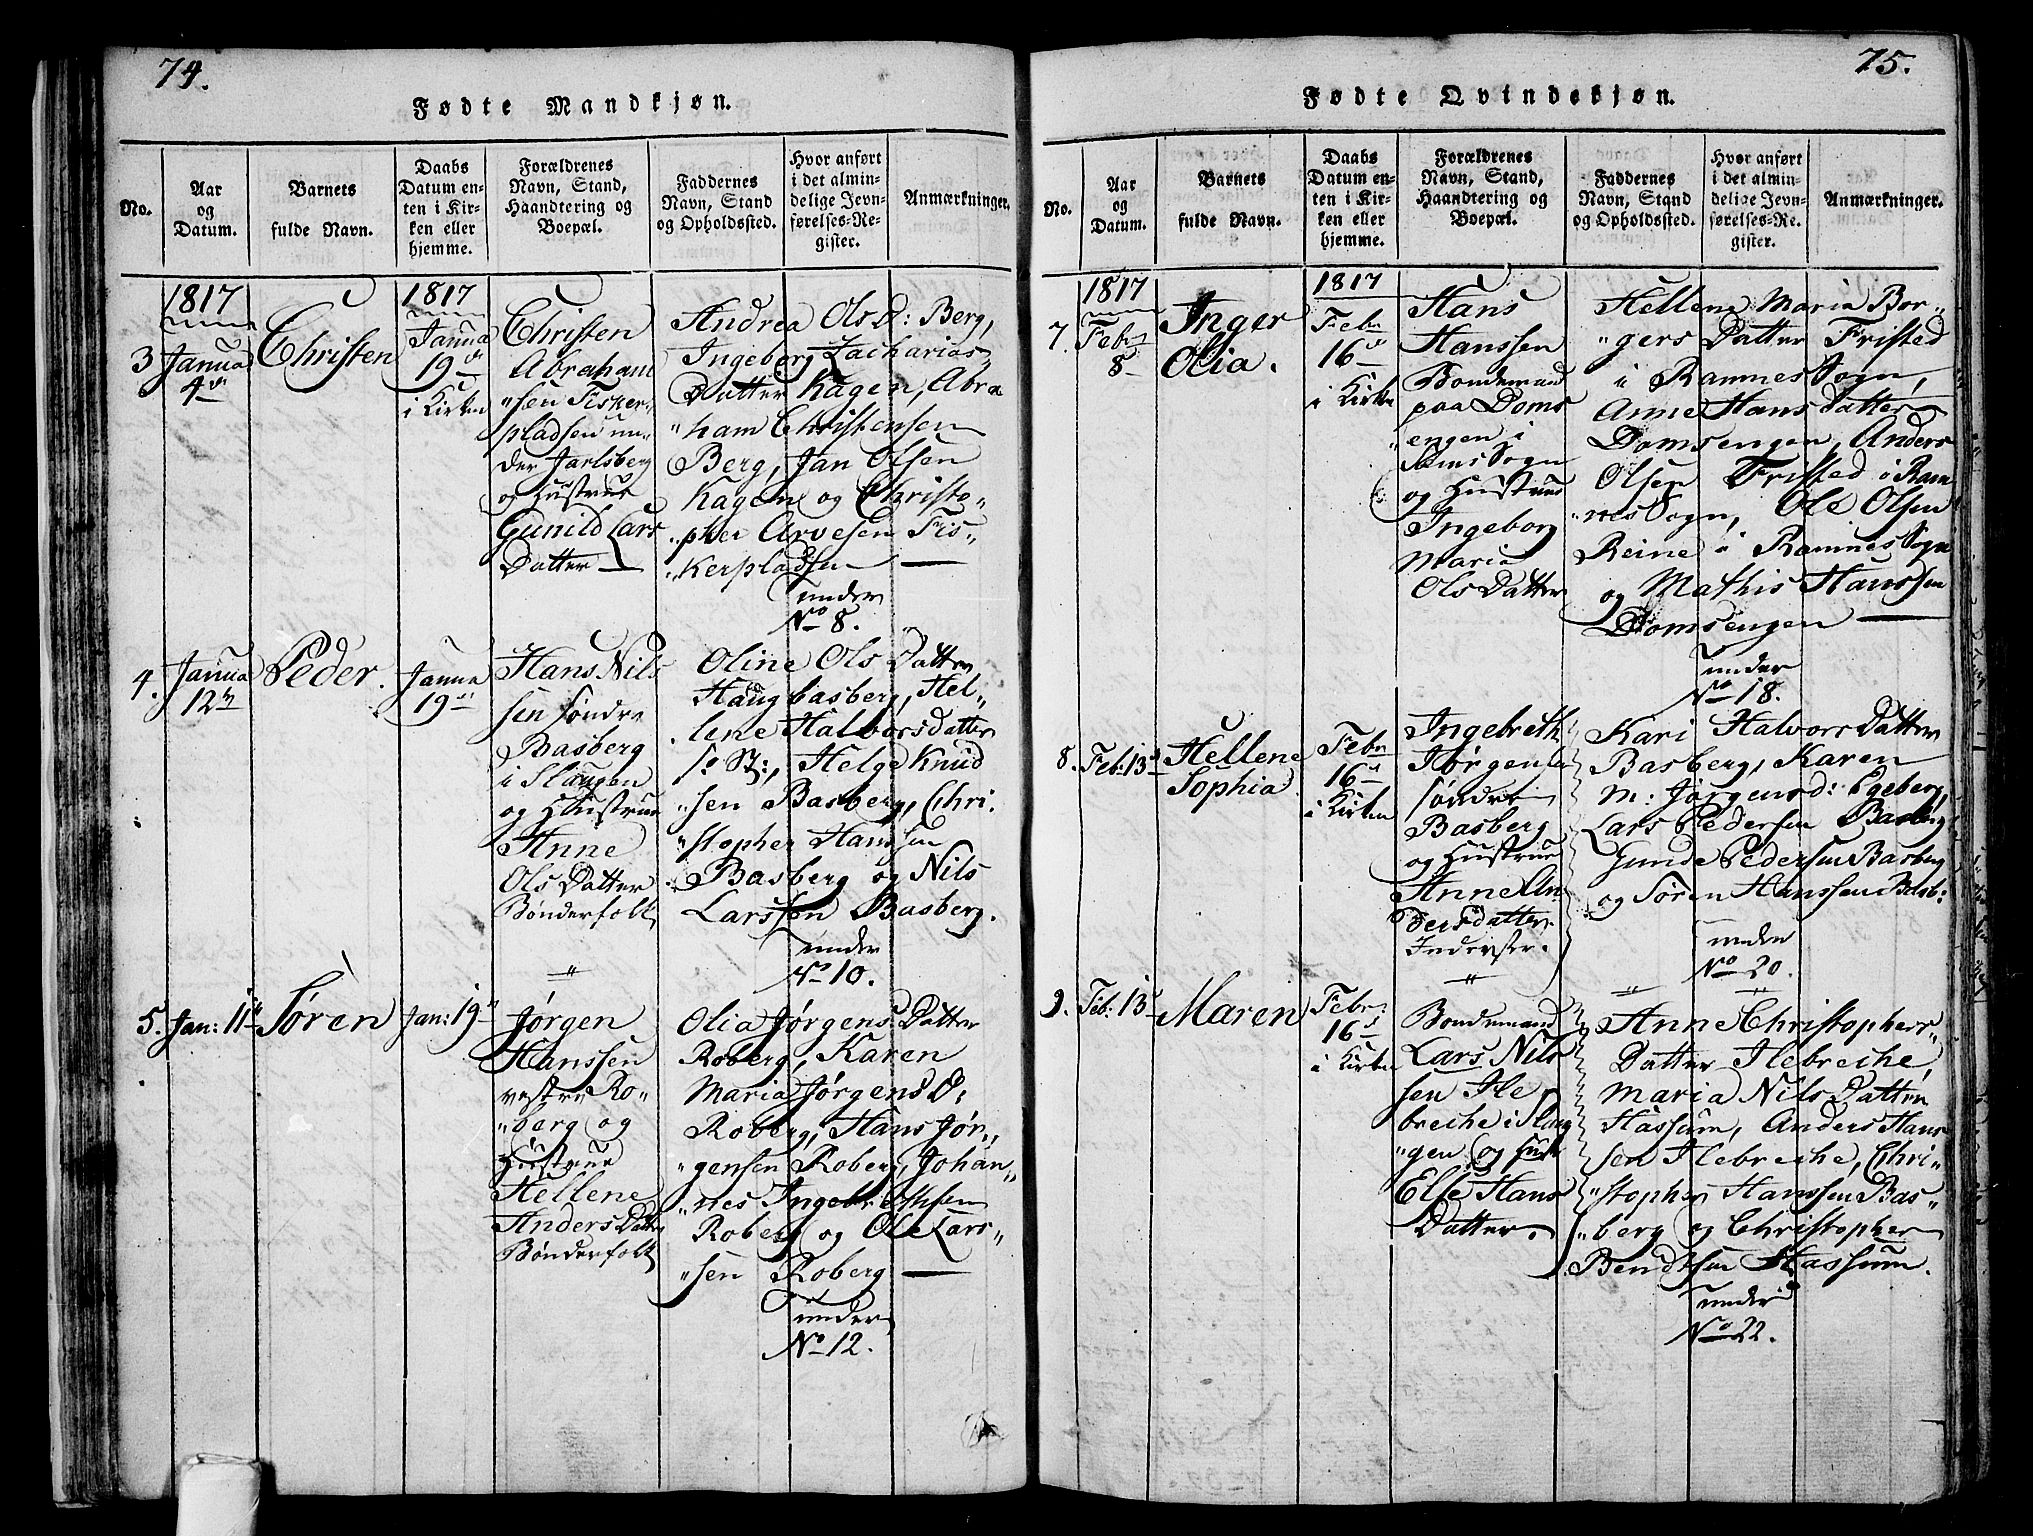 74.
Fødte Mandkjøn.
No.
Aar
og
Datum.
Barnets
fulde Navn.
Daabs
Datum en-
ten i Kir-
ken eller
hjemme.
Forældrenes
Navn, Stand,
Haandtering og
Boepæl.
Faddernes
Navn, Stand
og Opholdssted.
Hvor anført
i det almin-
delige Jevn-
førelses-Re-
gister.
Anmærkninger.
1817
3 Janua
4de
Christen
1817
Janua
19de
i Kirken
Christen
Abraham
"sen Fisker-
pladsen un-
der Jarlsberg
og Hustrue
Gunild Lars
Datter —
Andrea Ols D: Berg,
Ingeborg Zacharias
Datter Kagen, Abra
"ham Christensen
Berg, Jan Olsen
Kagen og Christo„
"pher Arvesen Fis„
"kerpladsen —
under
No 8.
4. Janua
12te
Peder.
Janua
19de
Hans Nils
sen søndre
Basberg
i Slaugen
og Hustrue
Anne
Ols Datter
Bønderfolk
"
Oline Ols Datter
Haugbasberg, Hel„
lene Halvorsdatter
s: St:, Helge Knud
"sen Basberg, Chri„
"stopher Hanssen
Basberg og Nils
Larssen Basberg.
under
No 10.
5. Jan: 11te
Søren
Jan: 19de
Jørgen
Hanssen
vestre Ro„
"berg og
Hustrue
Hellene
Anders Datter
Bønderfolk
Olia Jørgens Datter
Roberg, Karen
Maria Jørgens D:
Roberg, Hans Jør„
"gensen Roberg, Johan„
"nes Ingebrethsen
Roberg og Ole Lars„
"sen Roberg —
under
No 12.
75.
Fødte Qvindekjøn.
No.
Aar
og
Datum.
Barnets
fulde Navn.
Daabs
Datum en-
ten i Kir-
ken eller
hjemme.
Forældrenes
Navn, Stand,
Haandtering og
Boepæl.
Faddernes
Navn, Stand
og Opholdssted.
Hvor anført
i det almin-
delige Jevn-
førelses-Re-
gister.
Anmærkninger.
1817
7. Febr
8de
Inger
Olia.
1817
Febr
16de
i Kirken
Hans
Hanssen
Bondemand
paa Doms
"engen i
Sems Sogn
og Hustrue
Ingeborg
Maria
Ols Datter
Hellene Maria Bor„
"gers Datter Fristed
i Ramnes Sogn,
Anne Hans Datter
Domsengen, Anders
Olsen Fristed i Ram
"nes Sogn, Ole Olsen
Reine i Ramnes Sogn
og Mathis Hanssen
Domsengen —
under
No 18.
8. Feb: 13de
Hellene
Sophia
Febr
16de
i Kirken
Ingebreth
Jørgensen
søndre
Basberg
og Hustrue
Anne An„
dersdatter
Inderster.
"
Kari Halvors Datter
Basberg, Karen
M: Jørgensd: Egeberg,
Lars Pedersen Basberg
Gunde Pedersen Basberg
og Søren Hanssen Basb:
under
No 20.
9. Feb: 13de
Maren
Febr:
16de
i Kirken
Bondemand
Lars Nils
sen Ile
breche i Slau
"gen og Hustr
Else Hans
Datter.
Anne Christophers„
Datter Ilebreche,
Maria Nils Datter
Hassum, Anders Hans
sen Ilebreche, Chri„
"stopher Hanssen Bas„
"berg og Christopher
Bendtsen Hassum.
under
No 22.